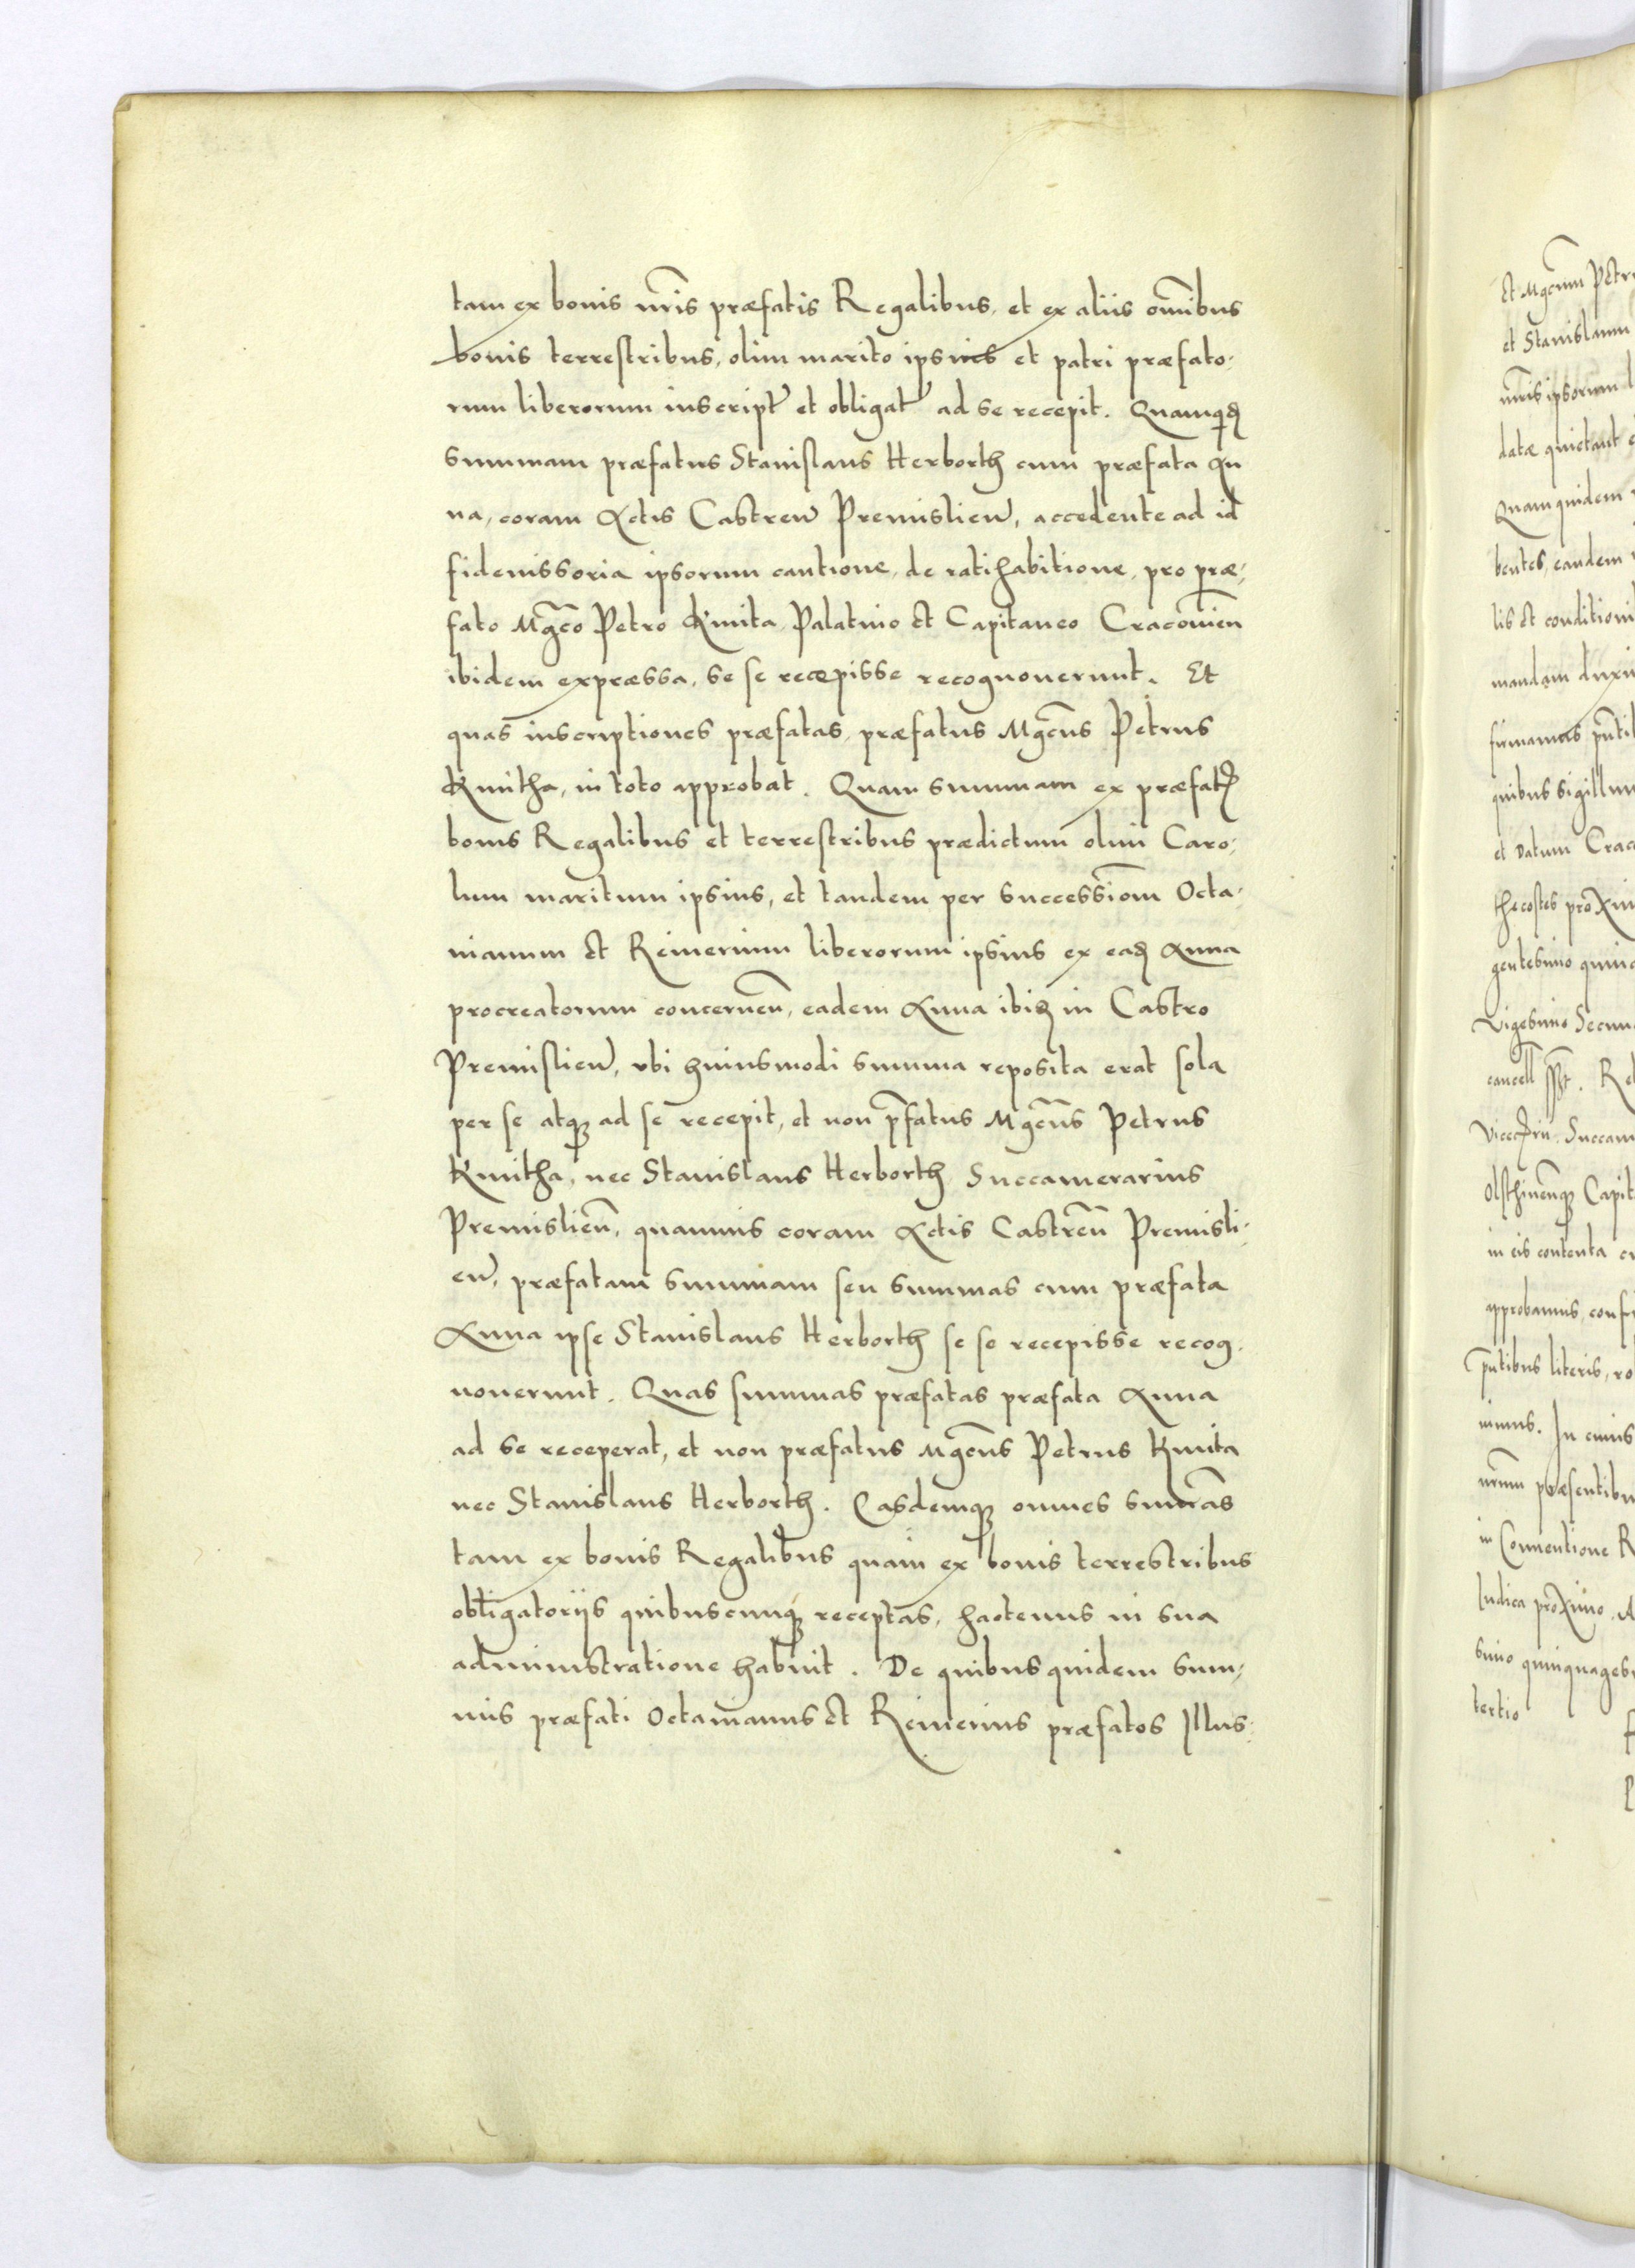 tam ex bonis nr̃is præfatis Regalibus, et ex aliis om̃ibus
bonis terrestribus, olim marito ipsius et patri præfato-
rum liberorum inscript̃ et obligat̃ ad se recepit. Quamqd̃
summam præfatus Stanislaus Herborth cum præfata An
na, coram Actis Castreñ Premislieñ, accedente ad id
fideiussoria ipsorum cautione, de ratihabitione, pro præ-
fato Mgc̃o Petro Kmita Palatino et Capitaneo Cracouieñ
ibidem expressa, se se recepisse recognouerunt. Et
quas inscriptiones præfatas, præfatus Mgc̃us Petrus
Kmitha, in toto approbat. Quam summam ex præfat̃
bonis Regalibus et terrestribus prædictum olim Caro-
lum maritum ipsius, et tandem per successiom̃ Octa-
uianum et Reinerium liberorum ipsius ex ead̃ Anna
procreatorum concerneñ, eadem Anna ibid̃ in Castro
Premislieñ, vbi huiusmodi summa reposita erat sola
per se atq̃ ad se recepit, et non p̃fatus Mgc̃us Petrus
Kmitha, nec Stanislaus Herborth Succamerarius
Premislieñ, quamuis coram Actis Castreñ Premisli-
eñ, præfatam summam seu summas cum præfata
Anna ipse Stanislaus Herborth se se recepisse recog-
nouerunt. Quas summas præfatas præfata Anna
ad se receperat, et non præfatus Mgc̃us Petrus Kmita
nec Stanislaus Herborth. Easdemq̃ omnes sum̃as
tam ex bonis Regalibus quam ex bonis terrestribus
obligatorijs quibuscunq̃ receptas, hactenus in sua
administratione habuit. De quibus quidem sum-
mis præfati Octauianus et Reinerius præfatos Illus-
et Mgc̃um Petr
et Stanislaum
ipsorum
datæ quietant
Quam quidem
bentes, eandem
lis et conditioni
mandam duxi
firmamus p̃nti
quibus sigillum
et Datum Crac
thecostes proxim
gentesimo quin
Vigesimo Secun
Succam
Capit
in eis contenta
approbamus, conf
p̃ntibus literis, ro
imus. In cuius
nr̃um præsentibu
in Conuentione R
Iudica proximo. A
simo quinquages
tertio